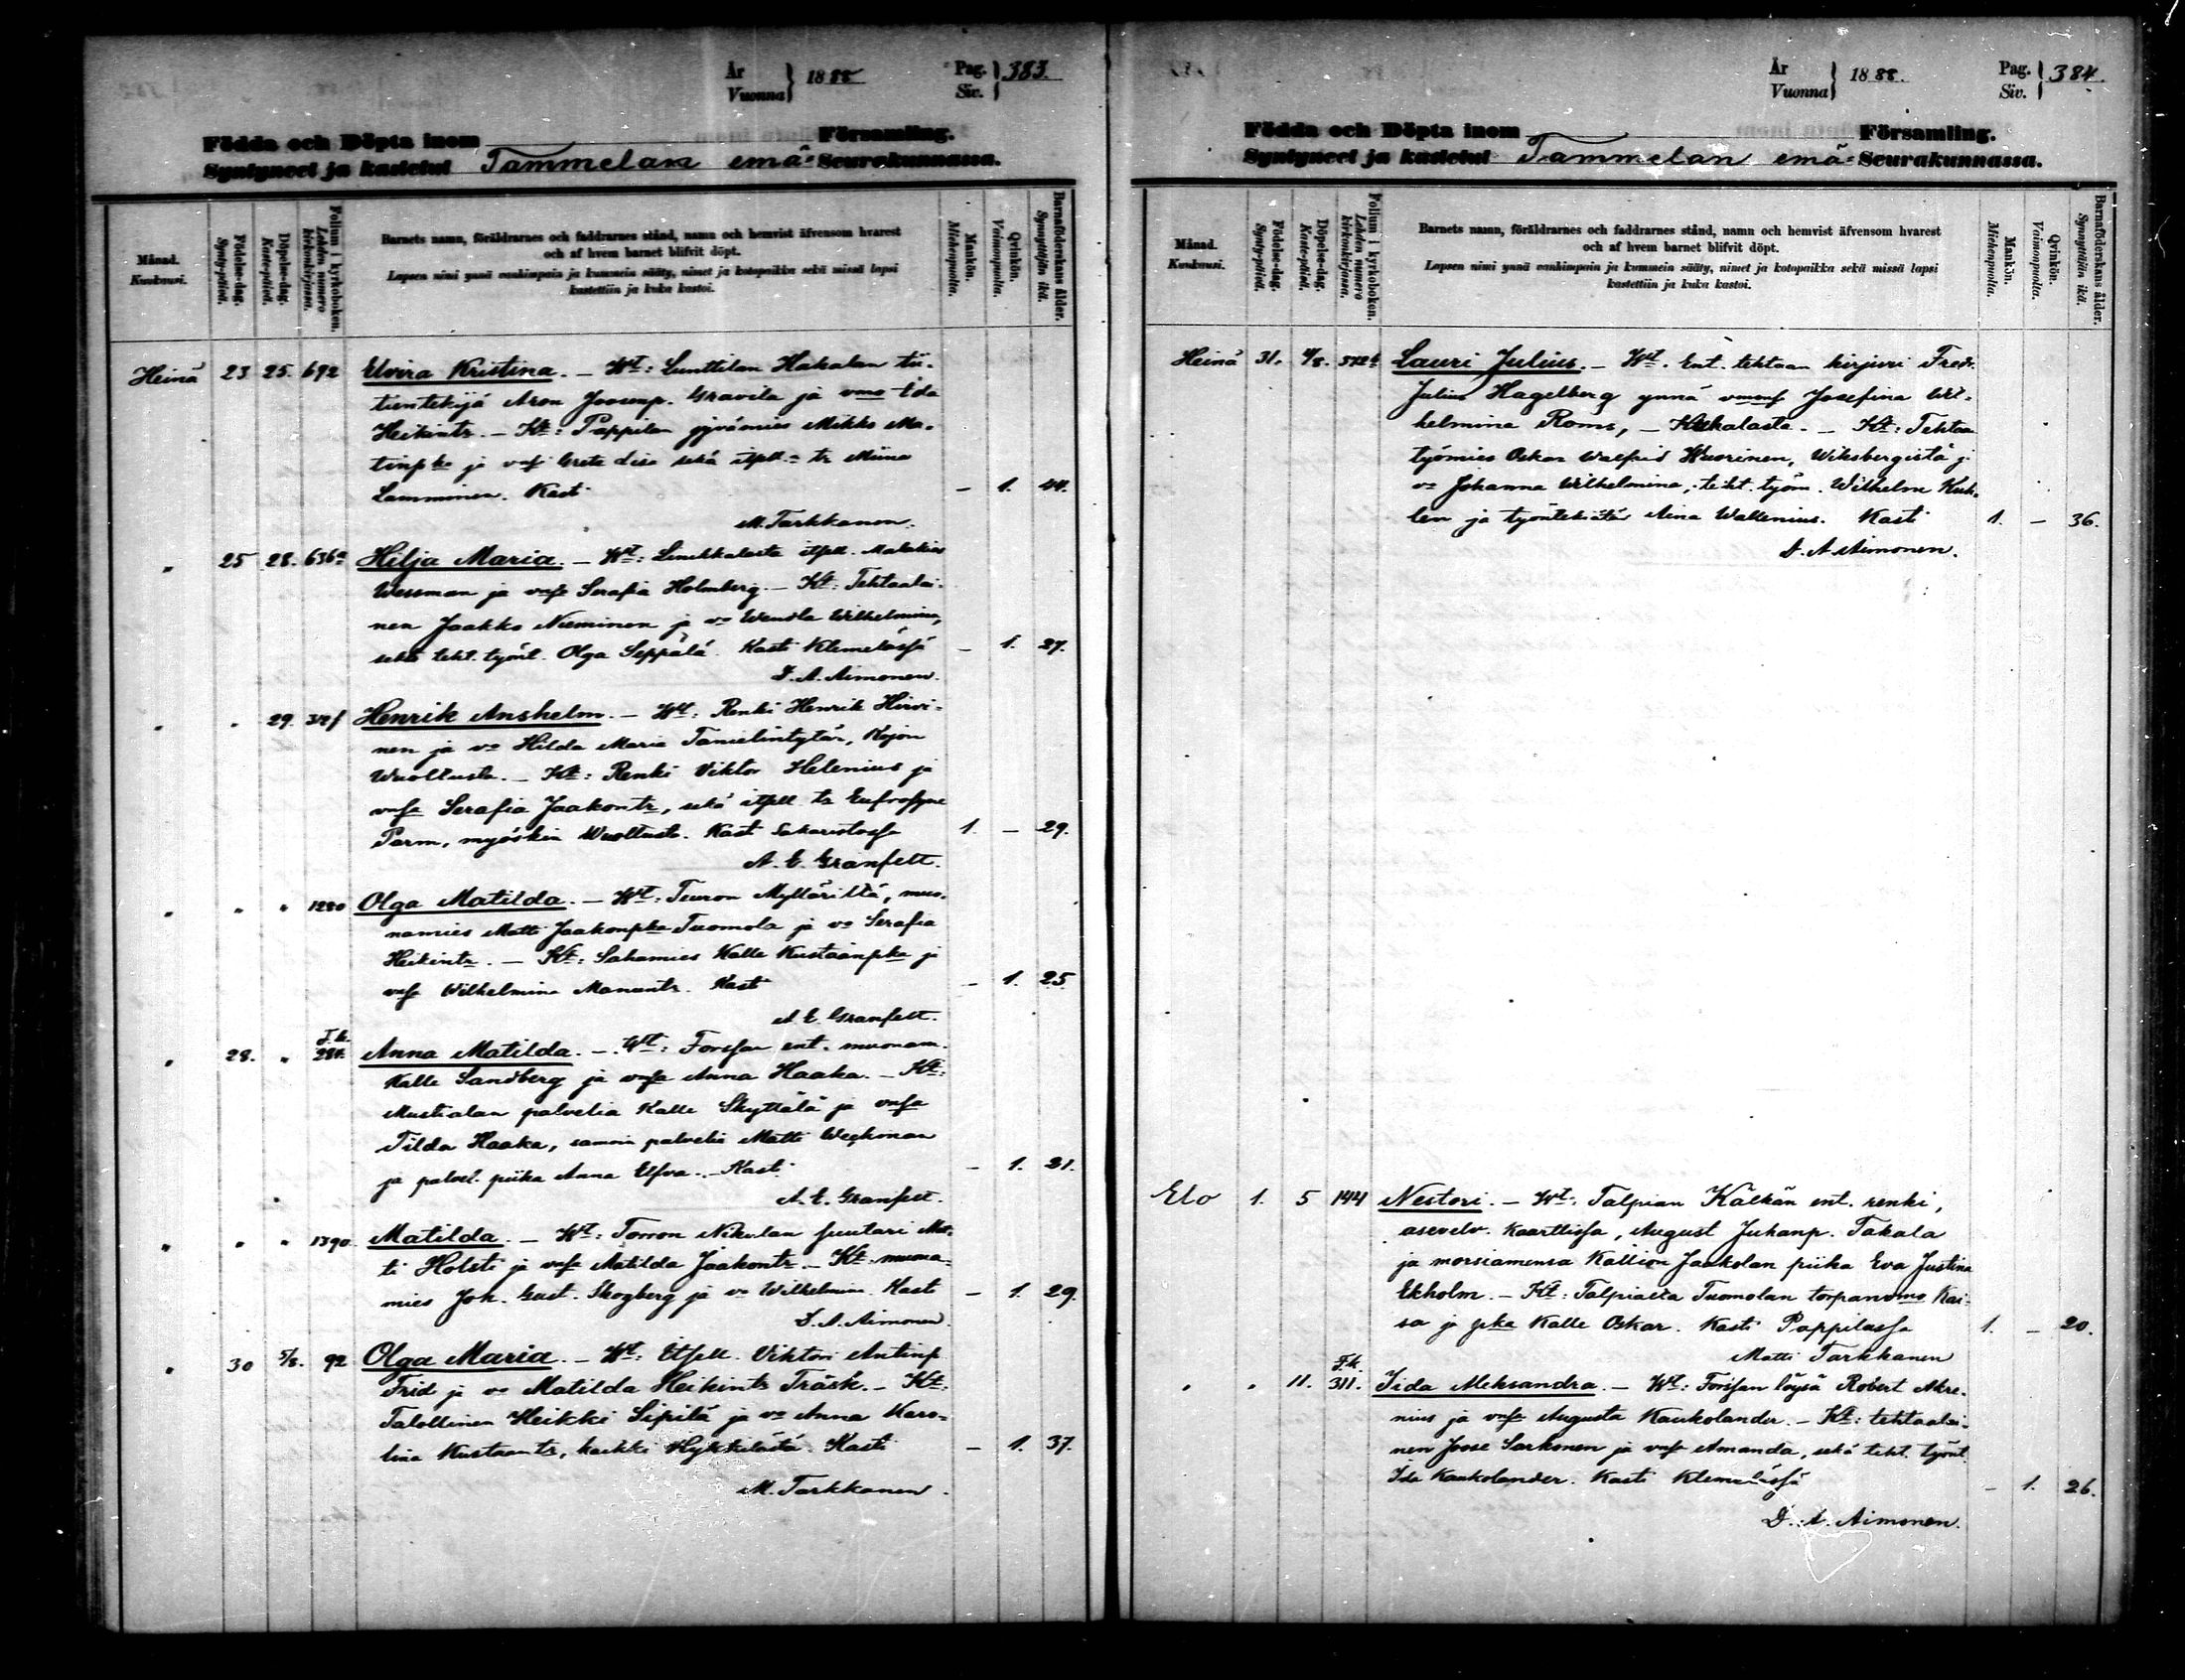 År
Vuonna } 1888
Pag.
Siv. } 383.
Födda och Döpta inom Församling.
Syntyneet ja kastetut Tammelan emä- Seurakunnassa.
Månad.
Kuukausi.
Födelse-dag.
Synty-päivä.
Döpelse-dag.
Kaste-päivä.
Folium i kyrkoboken.
Lehden numero kirkonkirjassa.
Barnets namn, föräldrarnes och faddrarnes stånd, namn och hemvist äfvensom hvarest
och af hvem barnet blifvit döpt.
Lapsen nimi ynnä vanhimpain ja kummein sääty, nimet ja kotopaikka sekä missä lapsi
kastettiin ja kuka kastoi.
Mankön.
Miehenpuolta.
Qvinkön.
Vaimonpuolta.
Barnaföderskans ålder.
Synnyttäjän ikä.
Heinä 23 25. 692 Elvira Kristina. — Wt: Sunttilan Hakalan tii-
lientekijä Aron Joosenp. Gravila ja vmo Ida
Heikintr. — Kt: Pappilan Mikko Ma-
tinpka ja vaif Greta Lisa sekä itsell. tr Miina
Lamminen. Kasti — 1. 44.
M. Tarkkanen.
" 25 28. 636a Hilja Maria. — Wt: Linikkalasta itsell. Malakias
Wessman ja vaifs Serafia Holmberg. — Kt: Tehtaalai-
nen Jaakko Nieminen ja vo Wendla Wilhelmina,
sekä teht. työnt. Olga Seppälä. Kasti Klemelässä — 1. 27.
D. A. Aimonen.
" " 29. 312f Henrik Anshelm. — Wt: Renki Henrik Hirvi-
nen ja vo Hilda Maria Tanielintytär, Kojon
Wuoltusta. — Kt: Renki Viktor Helenius ja
vaifs Serafia Jaakontr, sekä itsell. tr Eufrosyne
Parm, myöskin Wuoltusta. Kast. Sakaristossa 1. — 29.
A. E. Granfelt.
" " " 1280 Olga Matilda. — Wt: Teuron Mylläriltä, muo-
namies Matti Jaakonpka Tuomola ja vo Serafia
Heikintr. — Kt: Sahamies Kalle Kustaanpka ja
vaifs Wilhelmina Manuntr. Kasti — 1. 25.
A. E. Granfelt.
F.k.
" 28. " 280. Anna Matilda. — Wt: Forssan ent. muonam.
Kalle Sandberg ja vaifs Anna Haaka. — Kt:
Mustialan palvelia Kalle Skyttälä ja vaifs
Tilda Haaka, samoin palvelia Matti Weckman
ja palvel. piika Anna Elfva. — Kasti — 1. 21.
A. E. Granfelt.
" " " 1390. Matilda. — Wt: Torron Nikulan suutari Mat-
ti Holsti ja vaifs Matilda Jaakontr. — Kt: muona-
mies Joh. Gust. Skogberg ja vo Wilhelmina. Kasti — 1. 29.
D. A. Aimonen.
" 30 5/8. 92 Olga Maria. — Wt: Itsell. Viktori Antinp.
Frid ja vo Matilda Heikintr Träsk. — Kt:
Talollinen Heikki Sipilä ja vo Anna Karo-
lina Kustaantr, kaikki Hykkilästä. Kasti — 1. 37.
M. Tarkkanen.
År
Vuonna } 1888.
Pag.
Siv. } 384.
Födda och Döpta inom Församling.
Syntyneet ja kastetut Tammelan emä- Seurakunnassa.
Månad.
Kuukausi.
Födelse-dag.
Synty-päivä.
Döpelse-dag.
Kaste-päivä.
Folium i kyrkoboken.
Lehden numero kirkonkirjassa.
Barnets namn, föräldrarnes och faddrarnes stånd, namn och hemvist äfvensom hvarest
och af hvem barnet blifvit döpt.
Lapsen nimi ynnä vanhimpain ja kummein sääty, nimet ja kotopaikka sekä missä lapsi
kastettiin ja kuka kastoi.
Mankön.
Miehenpuolta.
Qvinkön.
Vaimonpuolta.
Barnaföderskans ålder.
Synnyttäjän ikä.
Heinä 31. Lauri Julius. — Wt. Ent. tehtaan kirjuri Fredr.
Julius Hagelberg ynnä vmons Josefina Wil-
helmina Roms, — — Kt: Tehtaan
työmies Oskar Walfrid Wuorinen, Wiksbergistä j.
vo Johanna Wilhelmina, teht. työm. Wilhelm Kuh-
len ja työntekiätär Aina Wallenius. Kasti 1. — 36.
D. A. Aimonen.
Elo 1. 5 144 Nestori. — Wt: Talpian Kälkän ent. renki,
asevelv. kaartissa, August Juhanp. Takala
ja morsiamensa Kallion Jaakolan piika Eva Justina
Ekholm. — Kt: Talpialta Tuomolan torpanvmo Kai-
sa ja pka Kalle Oskar. Kasti Pappilassa 1. — 20.
Matti Tarkkanen
F.k.
" " 11. 311. Iida Aleksandra. — Wt: Forssan löysä Robert Akre-
nius ja vaifs Augusta Kaukolander. — Kt: tehtaalai-
nen Joose Sarkonen ja vaifs Amanda, sekä teht. työnt.
Ida Kaukolander. Kasti Klemelässä — 1. 26.
D. A. Aimonen.